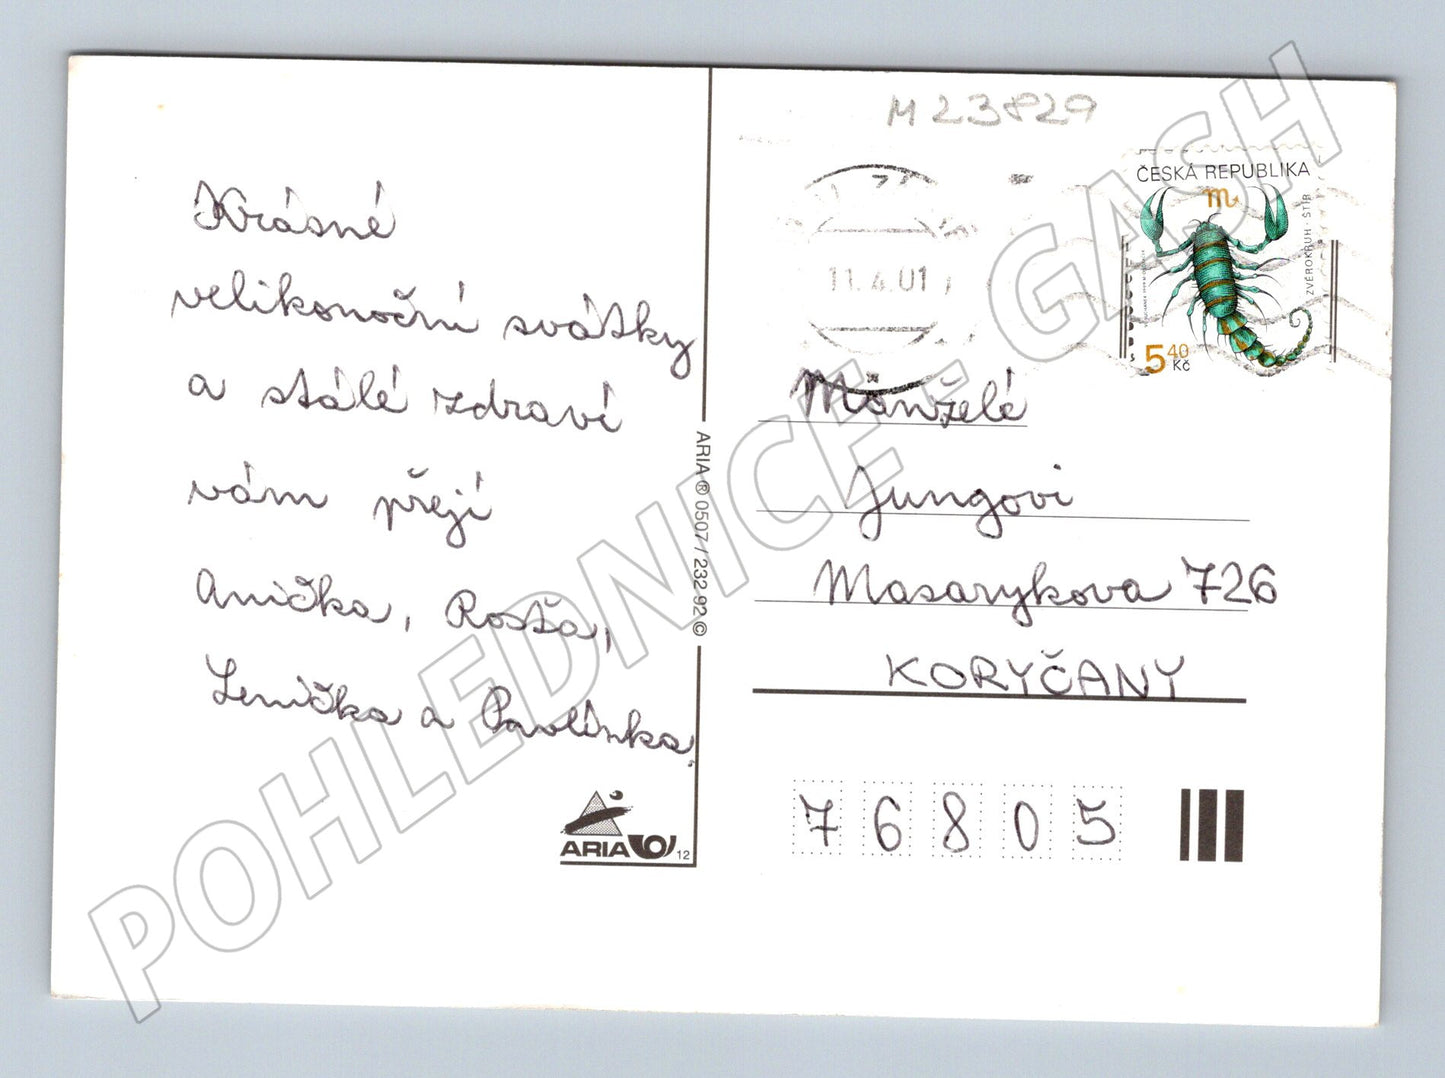 Krásné
velikonoční svátky
a stálé zdraví
vám přejí
Anička, Rosťa,
Lenička a Pavlínka.
ARIA ® 0507 / 232 92 ©
ARIA 12
M 23829
ČESKÁ REPUBLIKA
ZVĚROKRUH · ŠTÍR
5 40 Kč
11.4.01
Manželé
Jungovi
Masarykova 726
KORYČANY
76805
POHLEDNICE - GASH